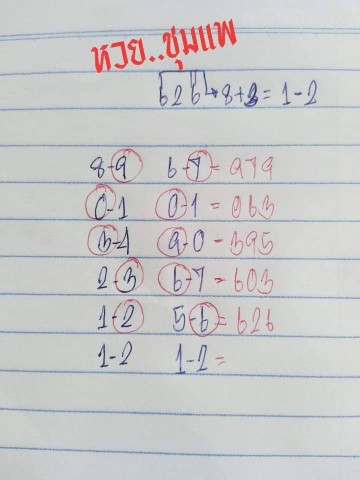 หวย..ชุมแพ
626→8+3=1-2
8-9 6-7=979
0-1 0-1=063
3-4 9-0-395
2-3 6-7-603
1-2 5-6=626
1-2 1-2=